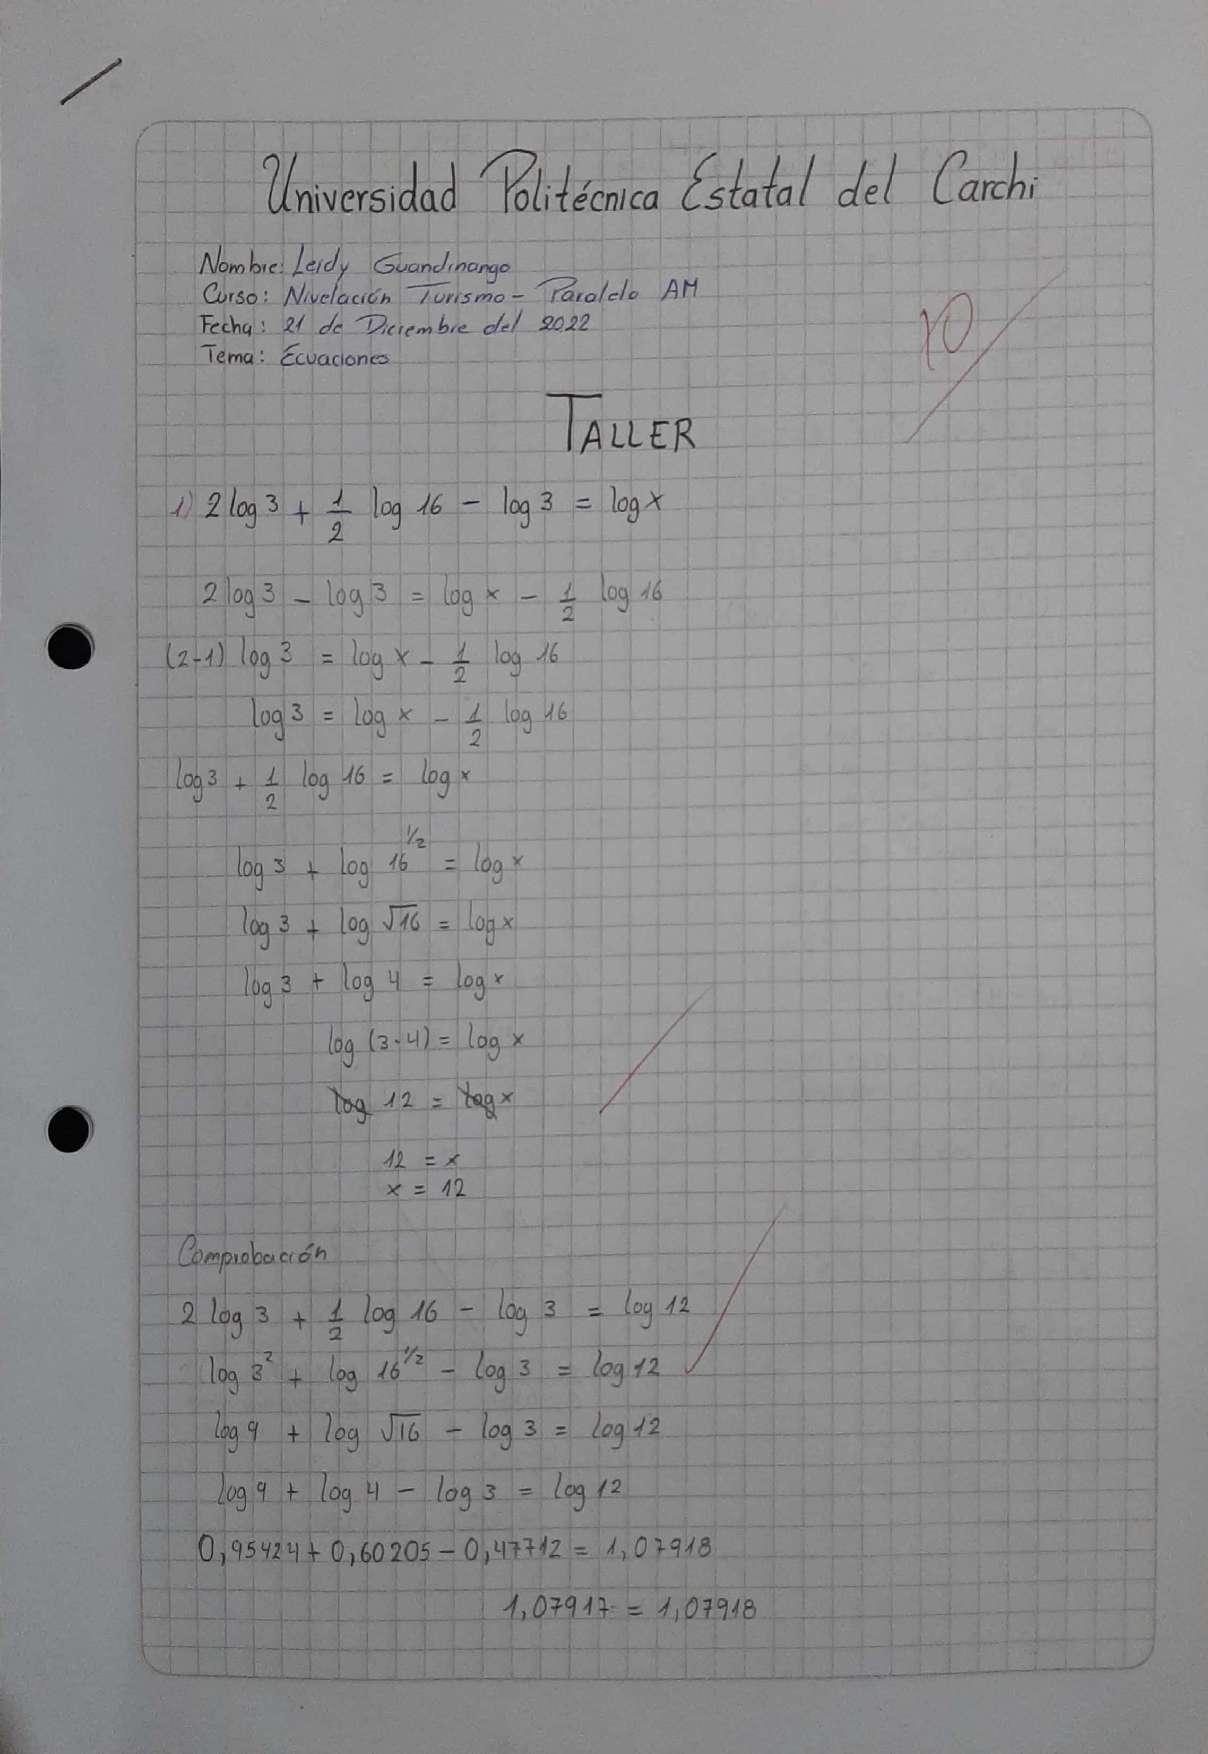 Universidad Politécnica Estatal del Carchi
Nombre: Leidy Guandinango
Curso: Nivelación Turismo - Paralelo AM
Fecha: 21 de Diciembre del 2022
Tema: Ecuaciones
10
TALLER
1) 2 log 3 + 1/2 log 16 - log 3 = log x
2 log 3 - log 3 = log x - 1/2 log 16
(2-1) log 3 = log x - 1/2 log 16
log 3 = log x - 1/2 log 16
log 3 + 1/2 log 16 = log x
log 3 + log 16^1/2 = log x
log 3 + log √16 = log x
log 3 + log 4 = log x
log (3·4) = log x
log 12 = log x
12 = x
x = 12
Comprobación
2 log 3 + 1/2 log 16 - log 3 = log 12
log 3² + log 16^1/2 - log 3 = log 12
log 9 + log √16 - log 3 = log 12
log 9 + log 4 - log 3 = log 12
0,95424 + 0,60205 - 0,47712 = 1,07918
1,07917 = 1,07918